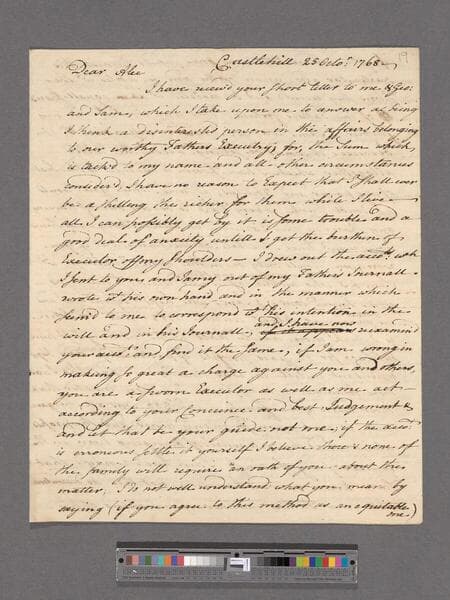 19
Castlehill 25 Octo.r 1768
Dear Alec
I have receiv'd your Short letter to me & Geo:
and Sam, which I take upon me to answer as being
I think a disinterested person in the affairs belonging
to our worthy Fathers Executry, for, the Sum which
is tack'd to my name and all other circumstances
consider'd, I have no reason to Expect that I Shall ever
be a shilling the richer for them while I live —
all I can possibly get by it is some trouble and a
good deal of anxiety untill I got the burthen of
Executor off my Shoulders — I drew out the acco.ts wch
I sent to you and Jamy out of my Fathers Journall
wrote wt his own hand and in the manner which
seem'd to me to correspond wt his intention in the
will and in his Journall, and I have now reexamin'd
your acco.t and find it the Same, if I am wrong in
making so great a charge against you and others,
you are a sworn Executor as well as me act
according to your Concience and best Judgement &
and let that be your guide not me, if the acco.t
is erroneous settle it yourself I believe there's none of
the family will require an oath of you about the
matter, I do not well understand what you mean by
saying (if you agree to this method as an equitable
one)